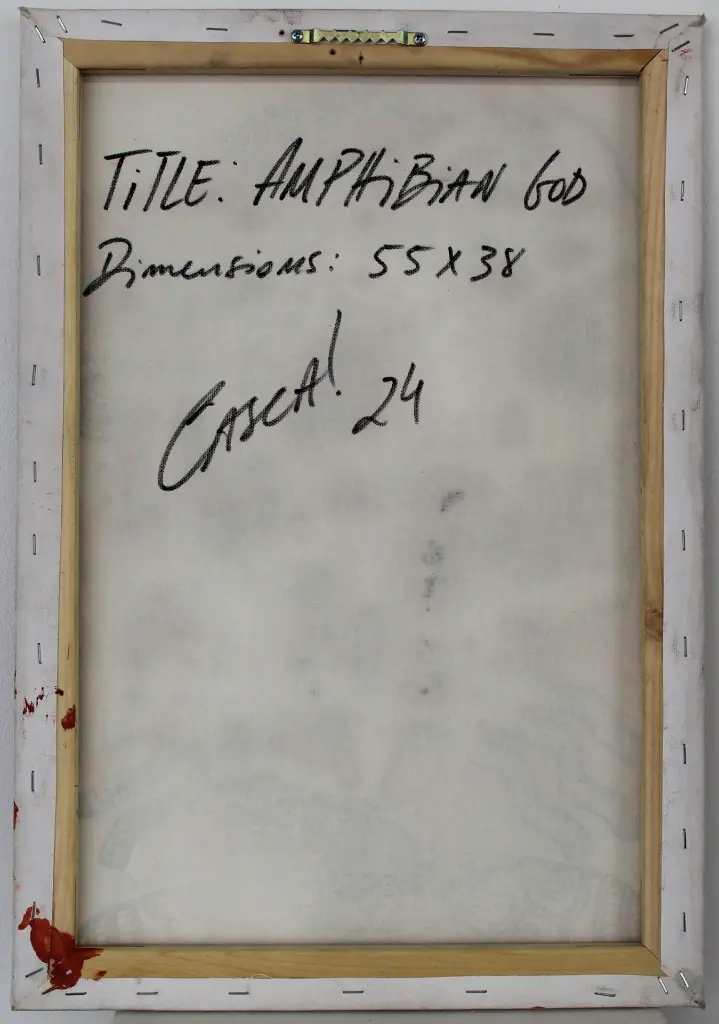 TiTLE: AMPHiBiAN GOD
Dimensions: 55 X 38
CASCA! 24